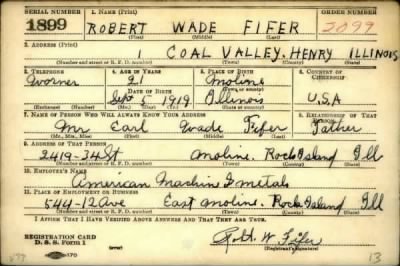 SERIAL NUMBER 1. NAME (Print) ORDER NUMBER
1899 ROBERT WADE FIFER 2099
(First) (Middle) (Last)
2. ADDRESS (Print)
COAL VALLEY, HENRY ILLINOIS
(Number and street or R. F. D. number) (Town) (County) (State)
3. TELEPHONE 4. AGE IN YEARS 5. PLACE OF BIRTH 6. COUNTRY OF CITIZENSHIP
21 Moline
DATE OF BIRTH (Town or county)
Sept 1919 Illinois U.S.A
(Exchange) (Number) (Mo.) (Day) (Yr.) (State or country)
7. NAME OF PERSON WHO WILL ALWAYS KNOW YOUR ADDRESS 8. RELATIONSHIP OF THAT PERSON
Mr Earl Wade Fifer Father
(Mr., Mrs., Miss) (First) (Middle) (Last)
9. ADDRESS OF THAT PERSON
2419-34 St Moline, Rock Island Ill
(Number and street or R. F. D. number) (Town) (County) (State)
10. EMPLOYER'S NAME
American Machine & metals
11. PLACE OF EMPLOYMENT OR BUSINESS
544-12 Ave East Moline, Rock Island Ill
(Number and street or R. F. D. number) (Town) (County) (State)
I AFFIRM THAT I HAVE VERIFIED ABOVE ANSWERS AND THAT THEY ARE TRUE.
REGISTRATION CARD
D. S. S. Form 1 Robt. W Fifer
(Registrant's signature)
13